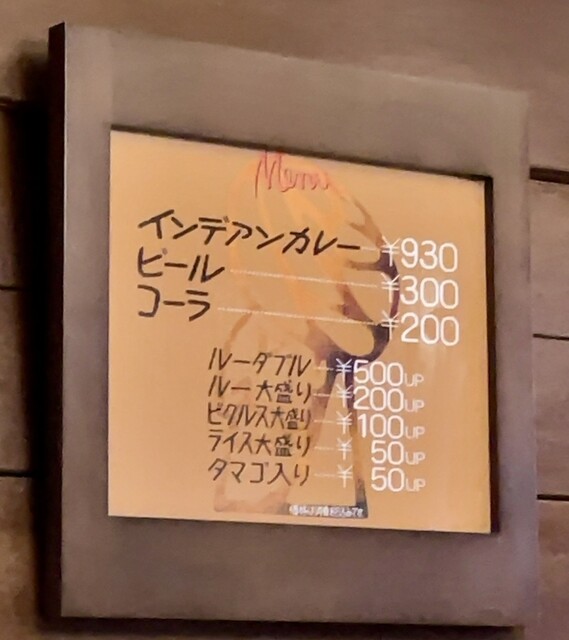 Menu
インデアンカレー ¥930
ビール ¥300
コーラ ¥200
ルーダブル ¥500UP
ルー大盛り ¥200UP
ピクルス大盛り ¥100UP
ライス大盛り ¥50UP
タマゴ入り ¥50UP